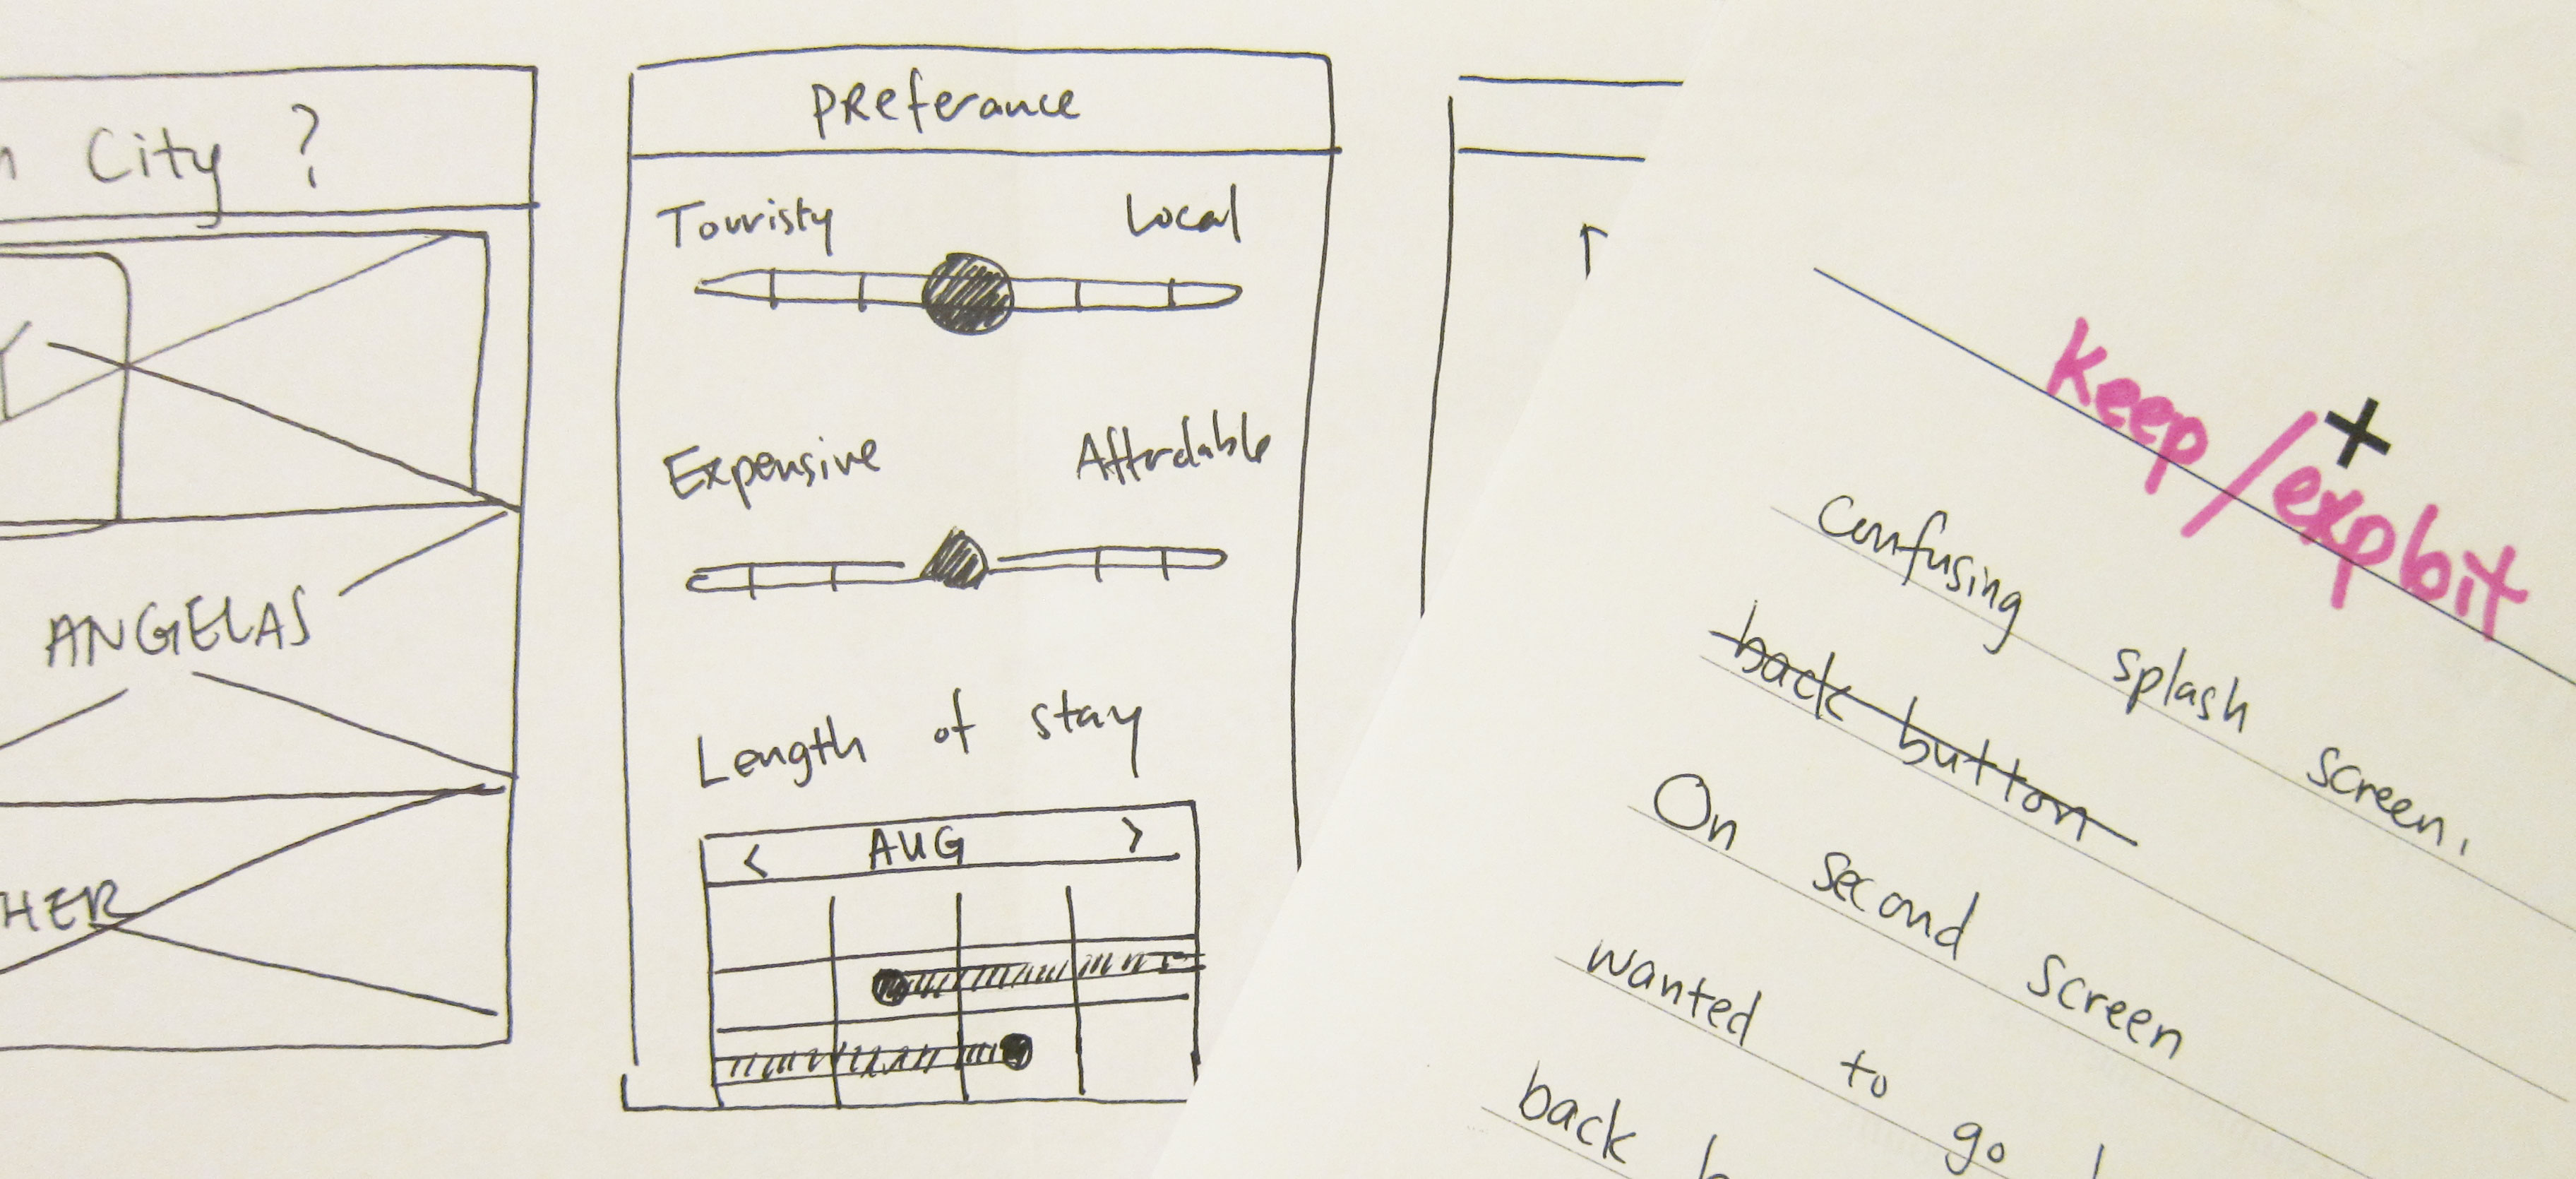 City ?
ANGELAS
HER
PReferance
Touristy Local
Expensive Affordable
Length of stay
< AUG >
+
Keep/exploit
Confusing splash screen.
back button
On second screen
wanted to go
back